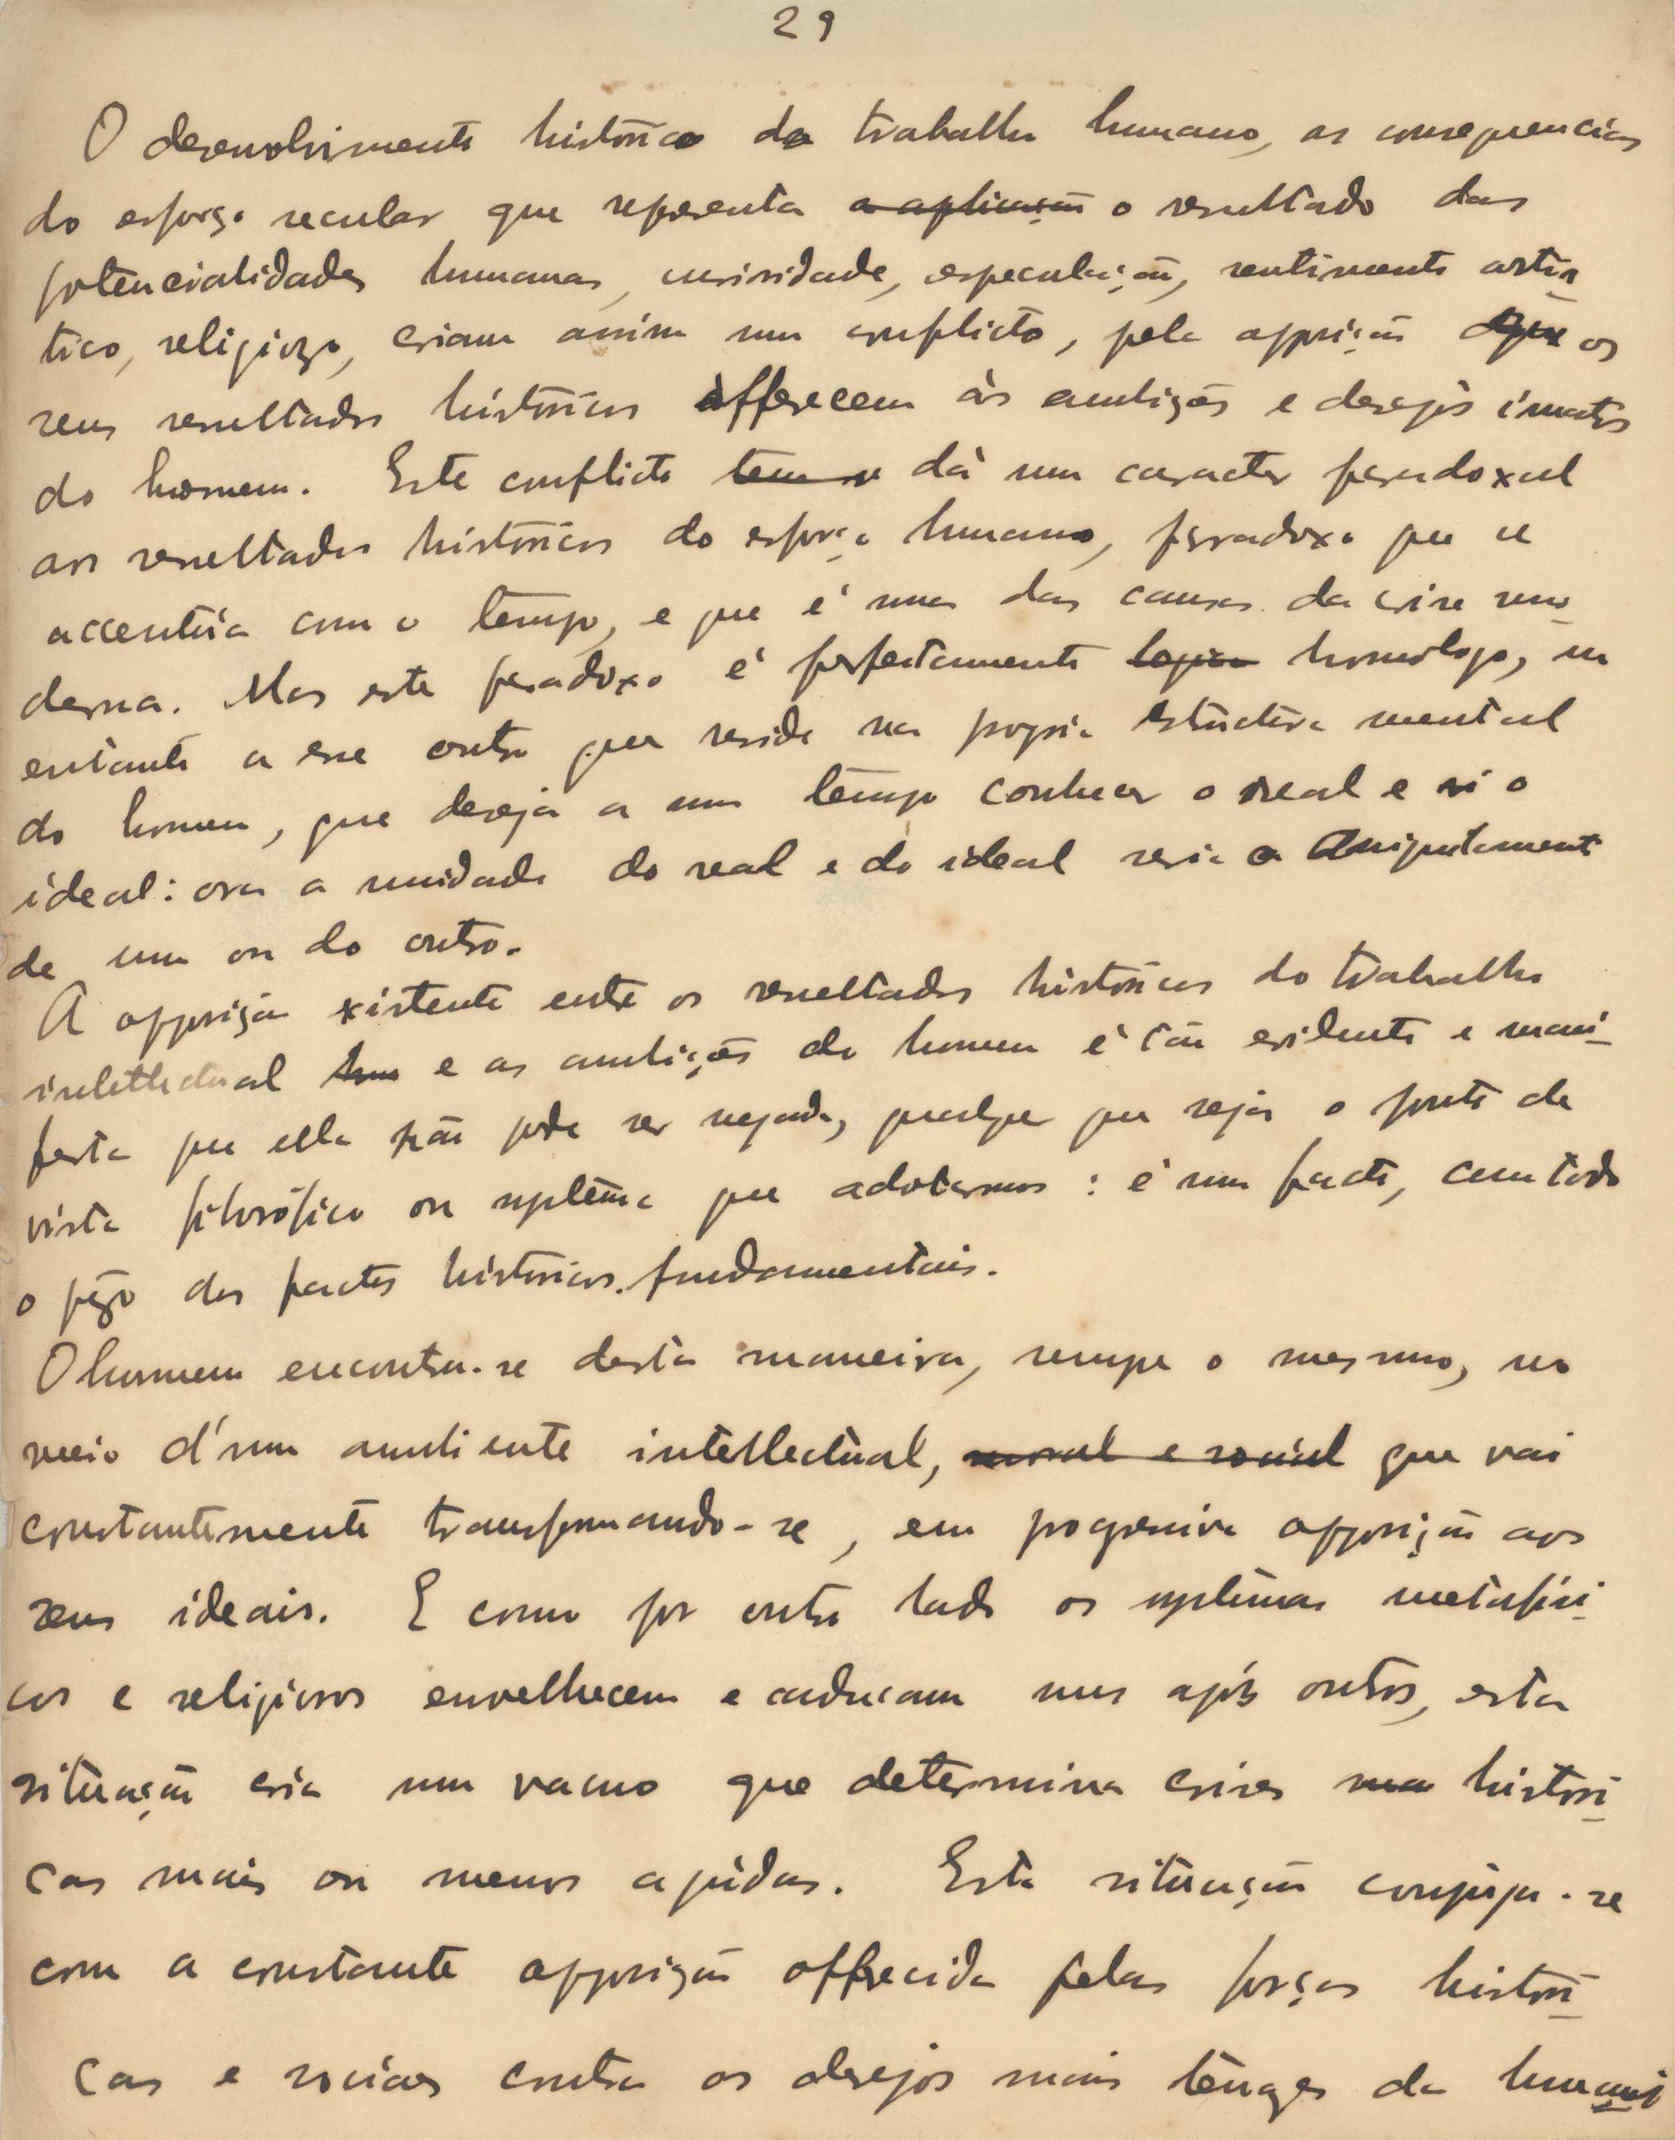 29
O desenvolvimento histórico do trabalho humano, as consequencias
do esforço secular que representa a aplicação o resultado das
potencialidades humanas, curiosidade, especulação, sentimento artis
tico, religiozo, criam assim um conflicto, pela opposição que os
seus resultados históricos offerecem ás ambições e desejos inatos
do homem. Este conflicto tem-se dá um caracter paradoxal
aos resultados históricos do esforço humano, paradoxo que se
accentúa com o tempo, e que é uma das causas da crise mo
derna. Mas este paradoxo é perfeitamente logico homologo, no
entanto a esse outro que reside na propria estructura mental
do homem, que deseja a um tempo conhecer o real e só o
ideal: ora a unidade do real e do ideal seria o aniquilamento
de um ou do outro.
A opposição existente entre os resultados históricos do trabalho
intellectual hum e as ambições do homem é tão evidente e mani
festa que ella não pode ser negada, qualquer que seja o ponto de
vista filosófico ou systema que adotarmos: é um facto, com todo
o pezo dos factos históricos fundamentais.
O homem encontra-se desta maneira, sempre o mesmo, no
meio d'um ambiente intellectual, moral e social que vai
constantemente transformando-se, em progressiva opposição aos
seus ideais. E como por outro lado os systemas metafísi
cos e religiosos envelhecem e caducam uns após outros, esta
situação cria um vacuo que determina crises histori
cas mais ou menos agudas. Esta situação conjuga-se
com a constante opposição offrecida pelas forças histori
cas e sociaes contra os desejos mais tenazes da humani